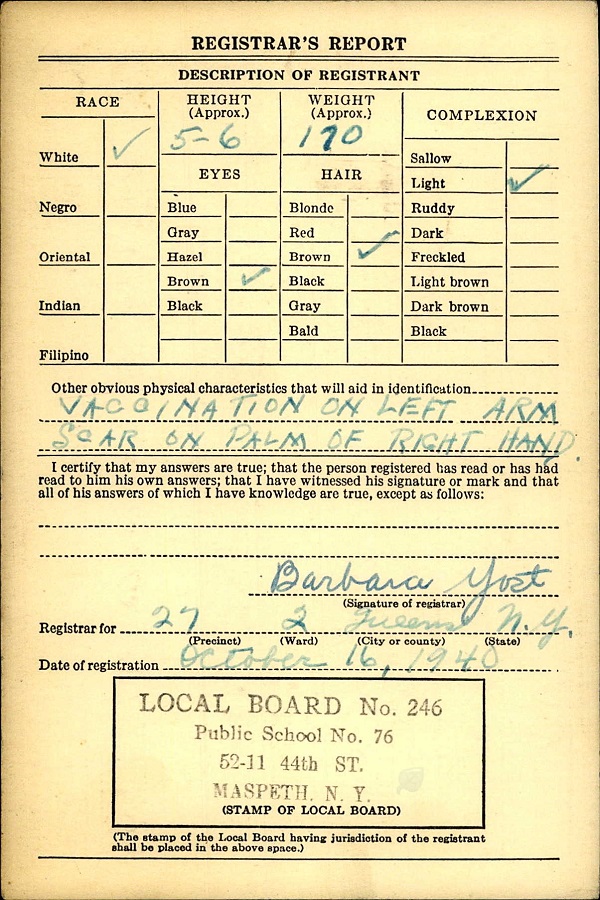 REGISTRAR'S REPORT
DESCRIPTION OF REGISTRANT
RACE
HEIGHT
(Approx.)
WEIGHT
(Approx.)
COMPLEXION
5-6
170
White ✓
EYES
HAIR
Sallow
Light ✓
Negro
Blue
Blonde
Ruddy
Gray
Red
Dark
Oriental
Hazel
Brown ✓
Freckled
Brown ✓
Black
Light brown
Indian
Black
Gray
Dark brown
Bald
Black
Filipino
Other obvious physical characteristics that will aid in identification
VACCINATION ON LEFT ARM
SCAR ON PALM OF RIGHT HAND.
I certify that my answers are true; that the person registered has read or has had
read to him his own answers; that I have witnessed his signature or mark and that
all of his answers of which I have knowledge are true, except as follows:
Barbara Yost
(Signature of registrar)
Registrar for 27 2 Queens N.Y.
(Precinct) (Ward) (City or county) (State)
Date of registration October 16, 1940
LOCAL BOARD No. 246
Public School No. 76
52-11 44th ST.
MASPETH, N. Y.
(STAMP OF LOCAL BOARD)
(The stamp of the Local Board having jurisdiction of the registrant
shall be placed in the above space.)